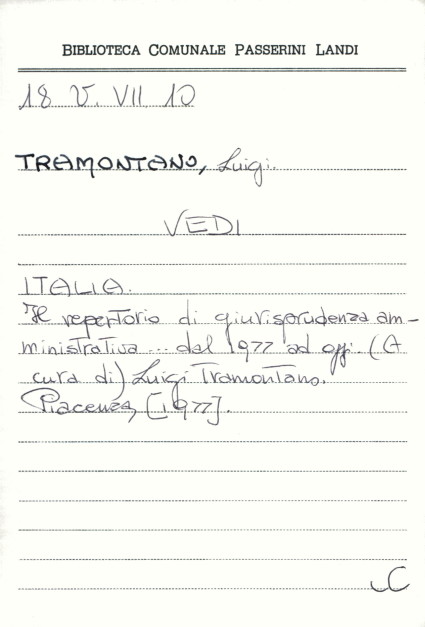 BIBLIOTECA COMUNALE PASSERINI LANDI
18 V. VII 10
TRAMONTANO, Luigi.
VEDI
ITALIA.
Il repertorio di giurisprudenza am-
ministrativa ... dal 1977 ad oggi. (A
cura di) Luigi Tramontano.
Piacenza, [1977].